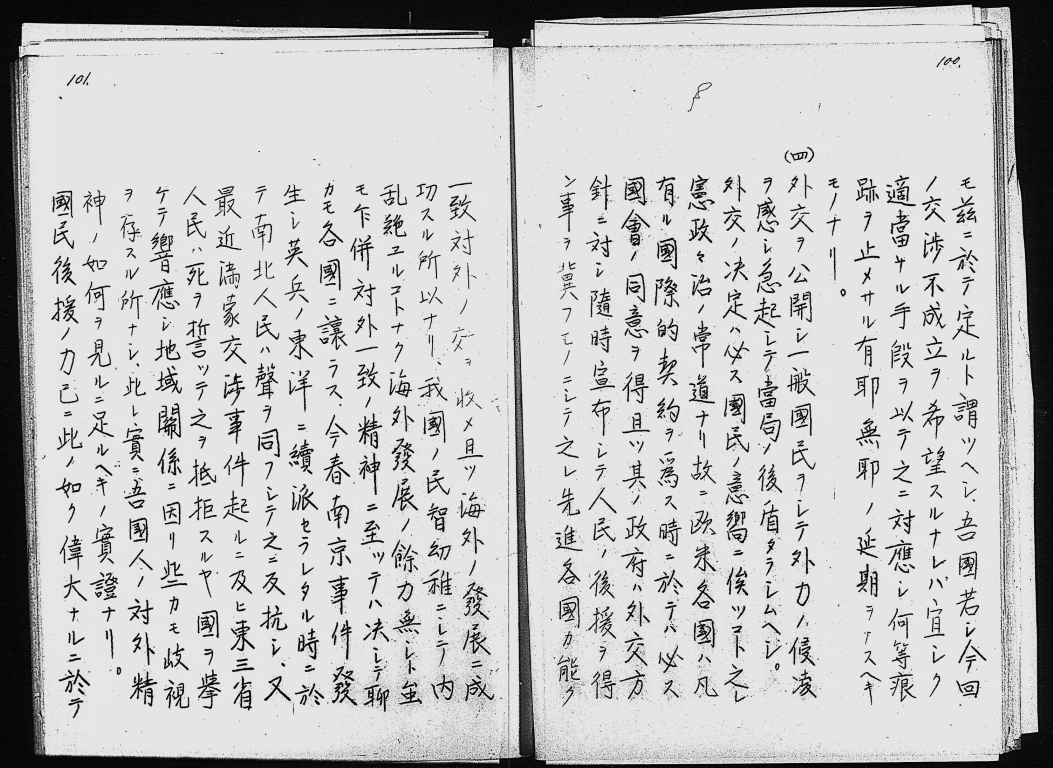 100.
モ茲ニ於テ定ルト謂ツヘシ、吾國若シ今回
ノ交渉不成立ヲ希望スルナレバ宜シク
適當ナル手段ヲ以テ之ニ対應シ何等痕
跡ヲ止メサル有耶無耶ノ延期ヲナスヘキ
モノナリ。
(四)
外交ヲ公開シ一般國民ヲシテ外力ノ侵凌
ヲ感シ急起シテ當局ノ後盾タラシムヘシ。
外交ノ決定ハ必ス國民ノ意嚮ニ俟ツコト之レ
憲政々治ノ常道ナリ故ニ欧米各國ハ凡
有ル國際的契約ヲ為ス時ニ於テハ必ス
國會ノ同意ヲ得且ツ其ノ政府ハ外交方
針ニ対シ隨時宣布シテ人民ノ後援ヲ得
ン事ヲ冀フモノニシテ之レ先進各國カ能ク
101.
一致対外ノ交ヲ收メ且ツ海外ノ發展ニ成
功スル所以ナリ、我國ノ民智幼稚ニシテ内
乱絶エルコトナク海外發展ノ餘力無シト虽
モ乍併対外一致ノ精神ニ至ッテハ决シテ聊
カモ各國ニ讓ラス、今春南京事件發
生シ英兵ノ東洋ニ續派セラレタル時ニ於
テ南北人民ハ聲ヲ同フシテ之ニ反抗シ、又
最近満蒙交渉事件起ルニ及ヒ東三省
人民ハ死ヲ誓ッテ之ヲ抵拒スルヤ國ヲ挙
ケテ響應シ地域關係ニ因リ些カモ歧視
ヲ存スル所ナシ、此レ實ニ吾國人ノ対外精
神ノ如何ヲ見ルニ足ルヘキノ實證ナリ。
國民後援ノ力已ニ此ノ如ク偉大ナルニ於テ